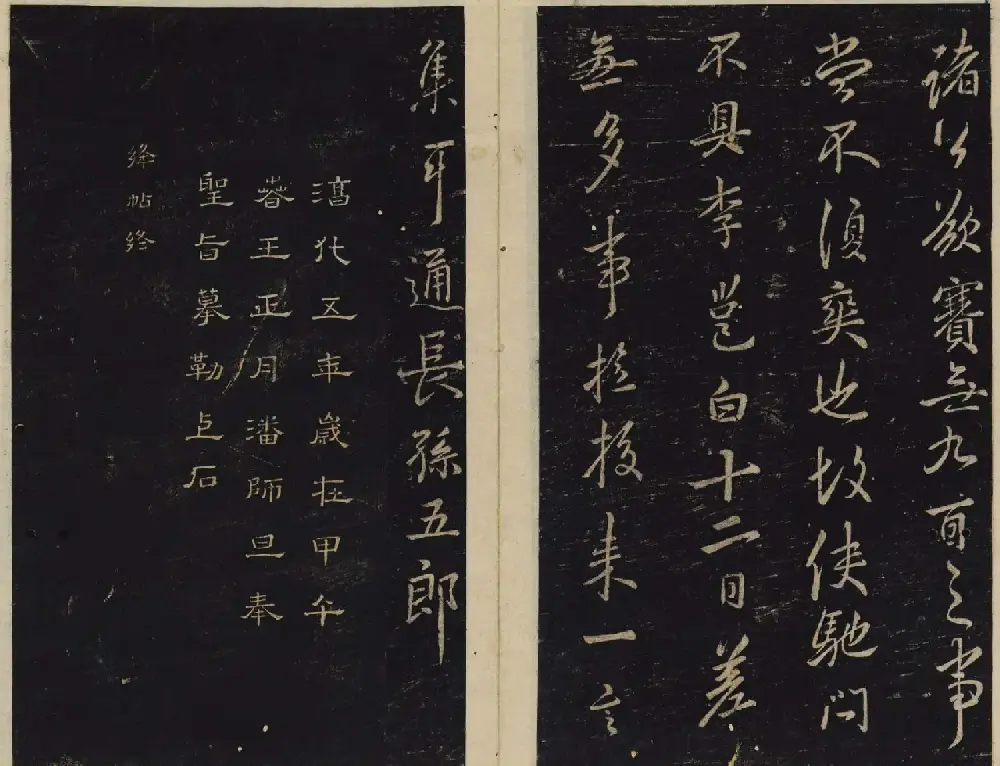 諸公欲賽無九百之事
嘗不須奕也故使馳問
不具李邕白十二日差
無多事來一言
集耳通長孫五郎
淳化五年歲在甲午
春王正月潘師旦奉
聖旨摹勒上石
絳帖終